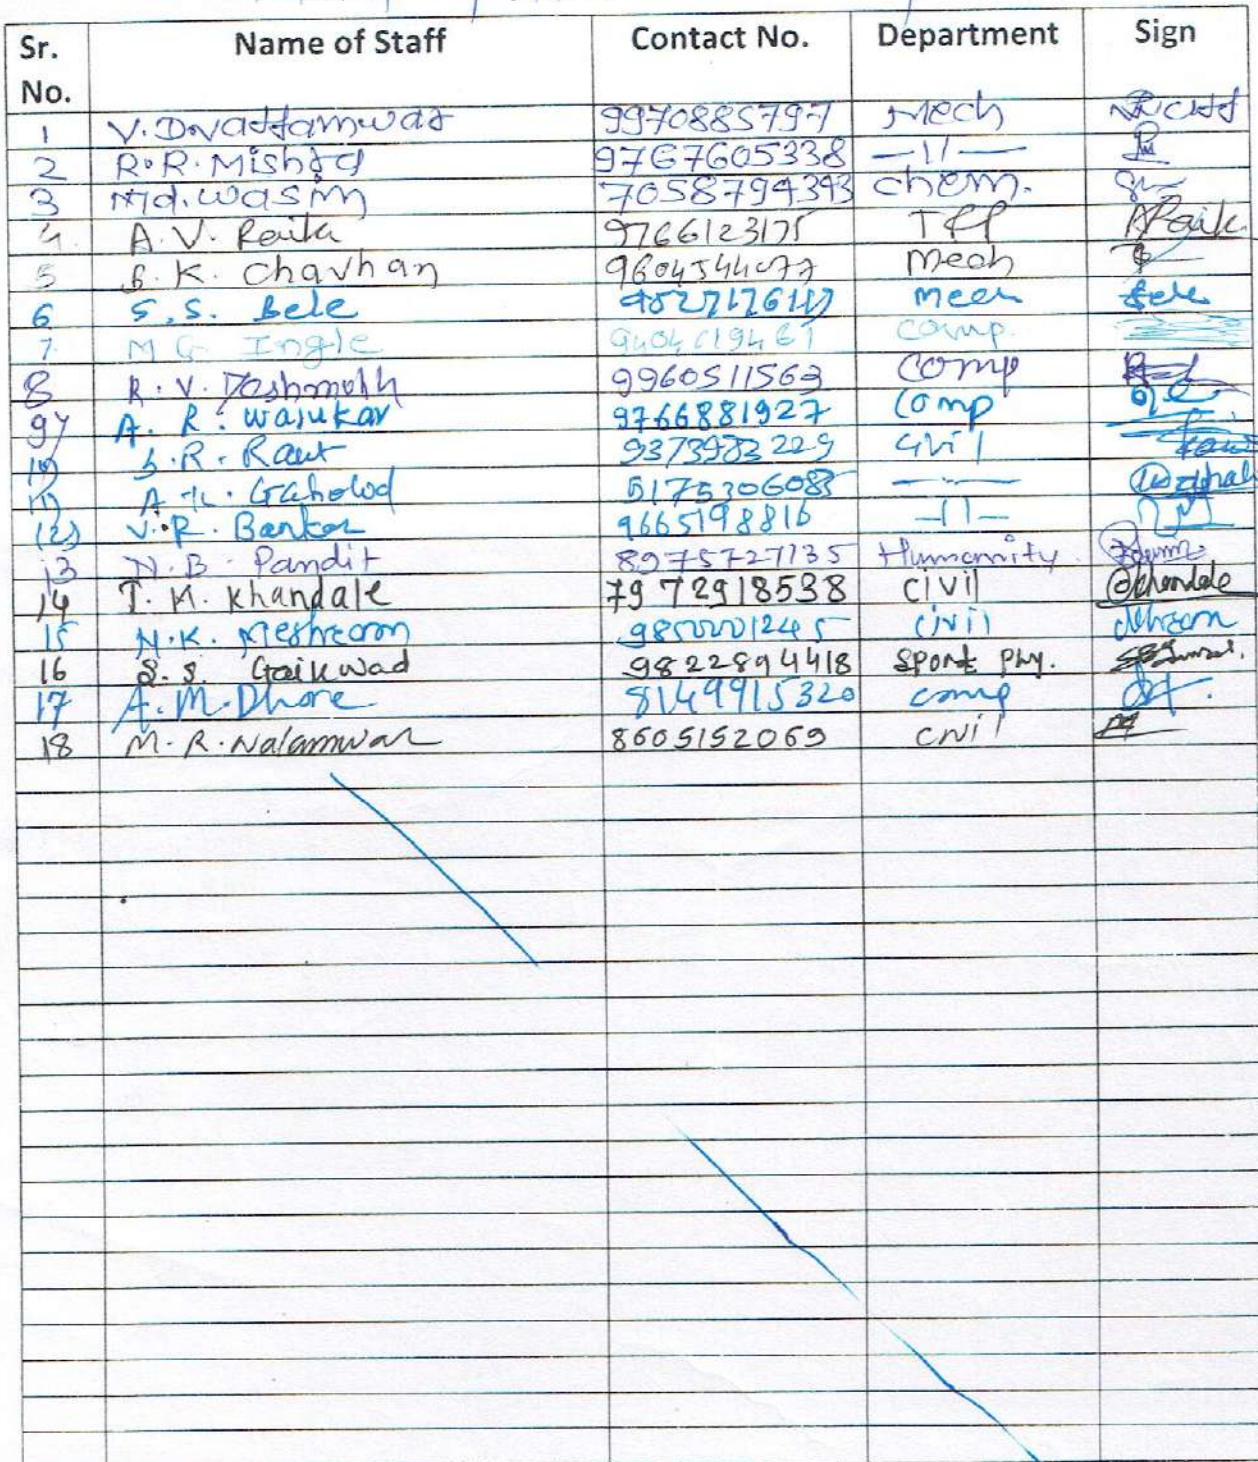 Sr. No. Name of Staff Contact No. Department Sign
1 V. D. Vattamwar 9970885797 Mech
2 R. R. Mishra 9767605338 —11—
3 Md. Wasim 7058794393 chem.
4. A. V. Raik 9766123175
5 K. Chavhan 9604544077 Mech
6 S. S. Bele Mech Bele
7. M G Ingle comp.
8 R. V. Deshmukh 9960511563 Comp
9) A. R. Wasukar 9766881927 Comp
10) S. R. Raut 9373983229 Civil Raut
11) A. K. —
12) V. R. Bankar 9665198816 —11—
13 N. B. Pandit 8975727135 Humanity
14 T. M. Khandale 79 72918538 Civil Khandale
15 N. K. Meshram Civil
16 S. S. Gaikwad 9822894418 Sport Phy.
17 A. M. Dhore 8149915320 comp
18 M. R. Nalamwar 8605152069 Civil